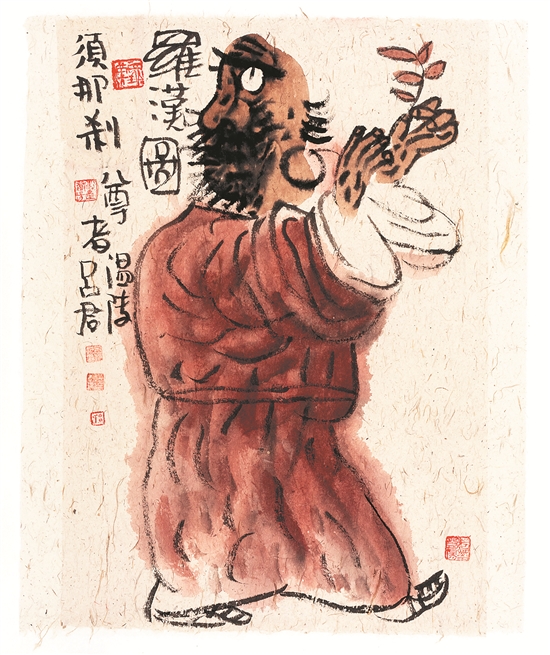 羅漢圖
須那刹
尊者
温陵
呂君